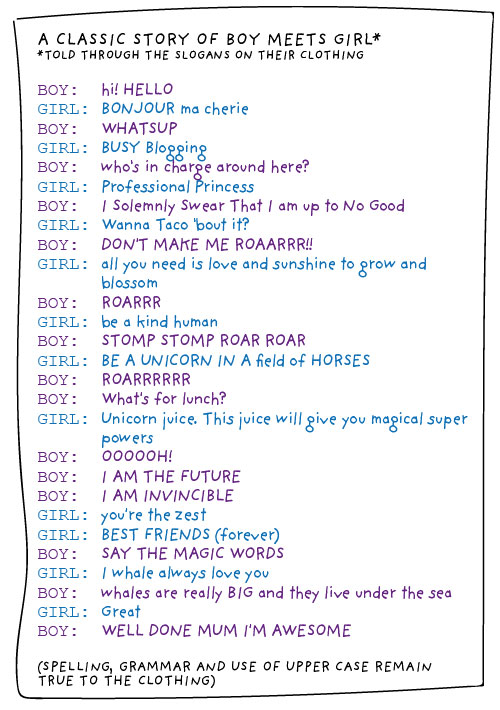 A CLASSIC STORY OF BOY MEETS GIRL*
*TOLD THROUGH THE SLOGANS ON THEIR CLOTHING
BOY: hi! HELLO
GIRL: BONJOUR ma cherie
BOY: WHATSUP
GIRL: BUSY Blogging
BOY: who's in charge around here?
GIRL: Professional Princess
BOY: I Solemnly Swear That I am up to No Good
GIRL: Wanna Taco 'bout it?
BOY: DON'T MAKE ME ROAARRR!!
GIRL: all you need is love and sunshine to grow and
blossom
BOY: ROARRR
GIRL: be a kind human
BOY: STOMP STOMP ROAR ROAR
GIRL: BE A UNICORN IN A field of HORSES
BOY: ROARRRRRR
BOY: What's for lunch?
GIRL: Unicorn juice. This juice will give you magical super
powers
BOY: OOOOOH!
BOY: I AM THE FUTURE
BOY: I AM INVINCIBLE
GIRL: you're the zest
GIRL: BEST FRIENDS (forever)
BOY: SAY THE MAGIC WORDS
GIRL: I whale always love you
BOY: whales are really BIG and they live under the sea
GIRL: Great
BOY: WELL DONE MUM I'M AWESOME
(SPELLING, GRAMMAR AND USE OF UPPER CASE REMAIN
TRUE TO THE CLOTHING)